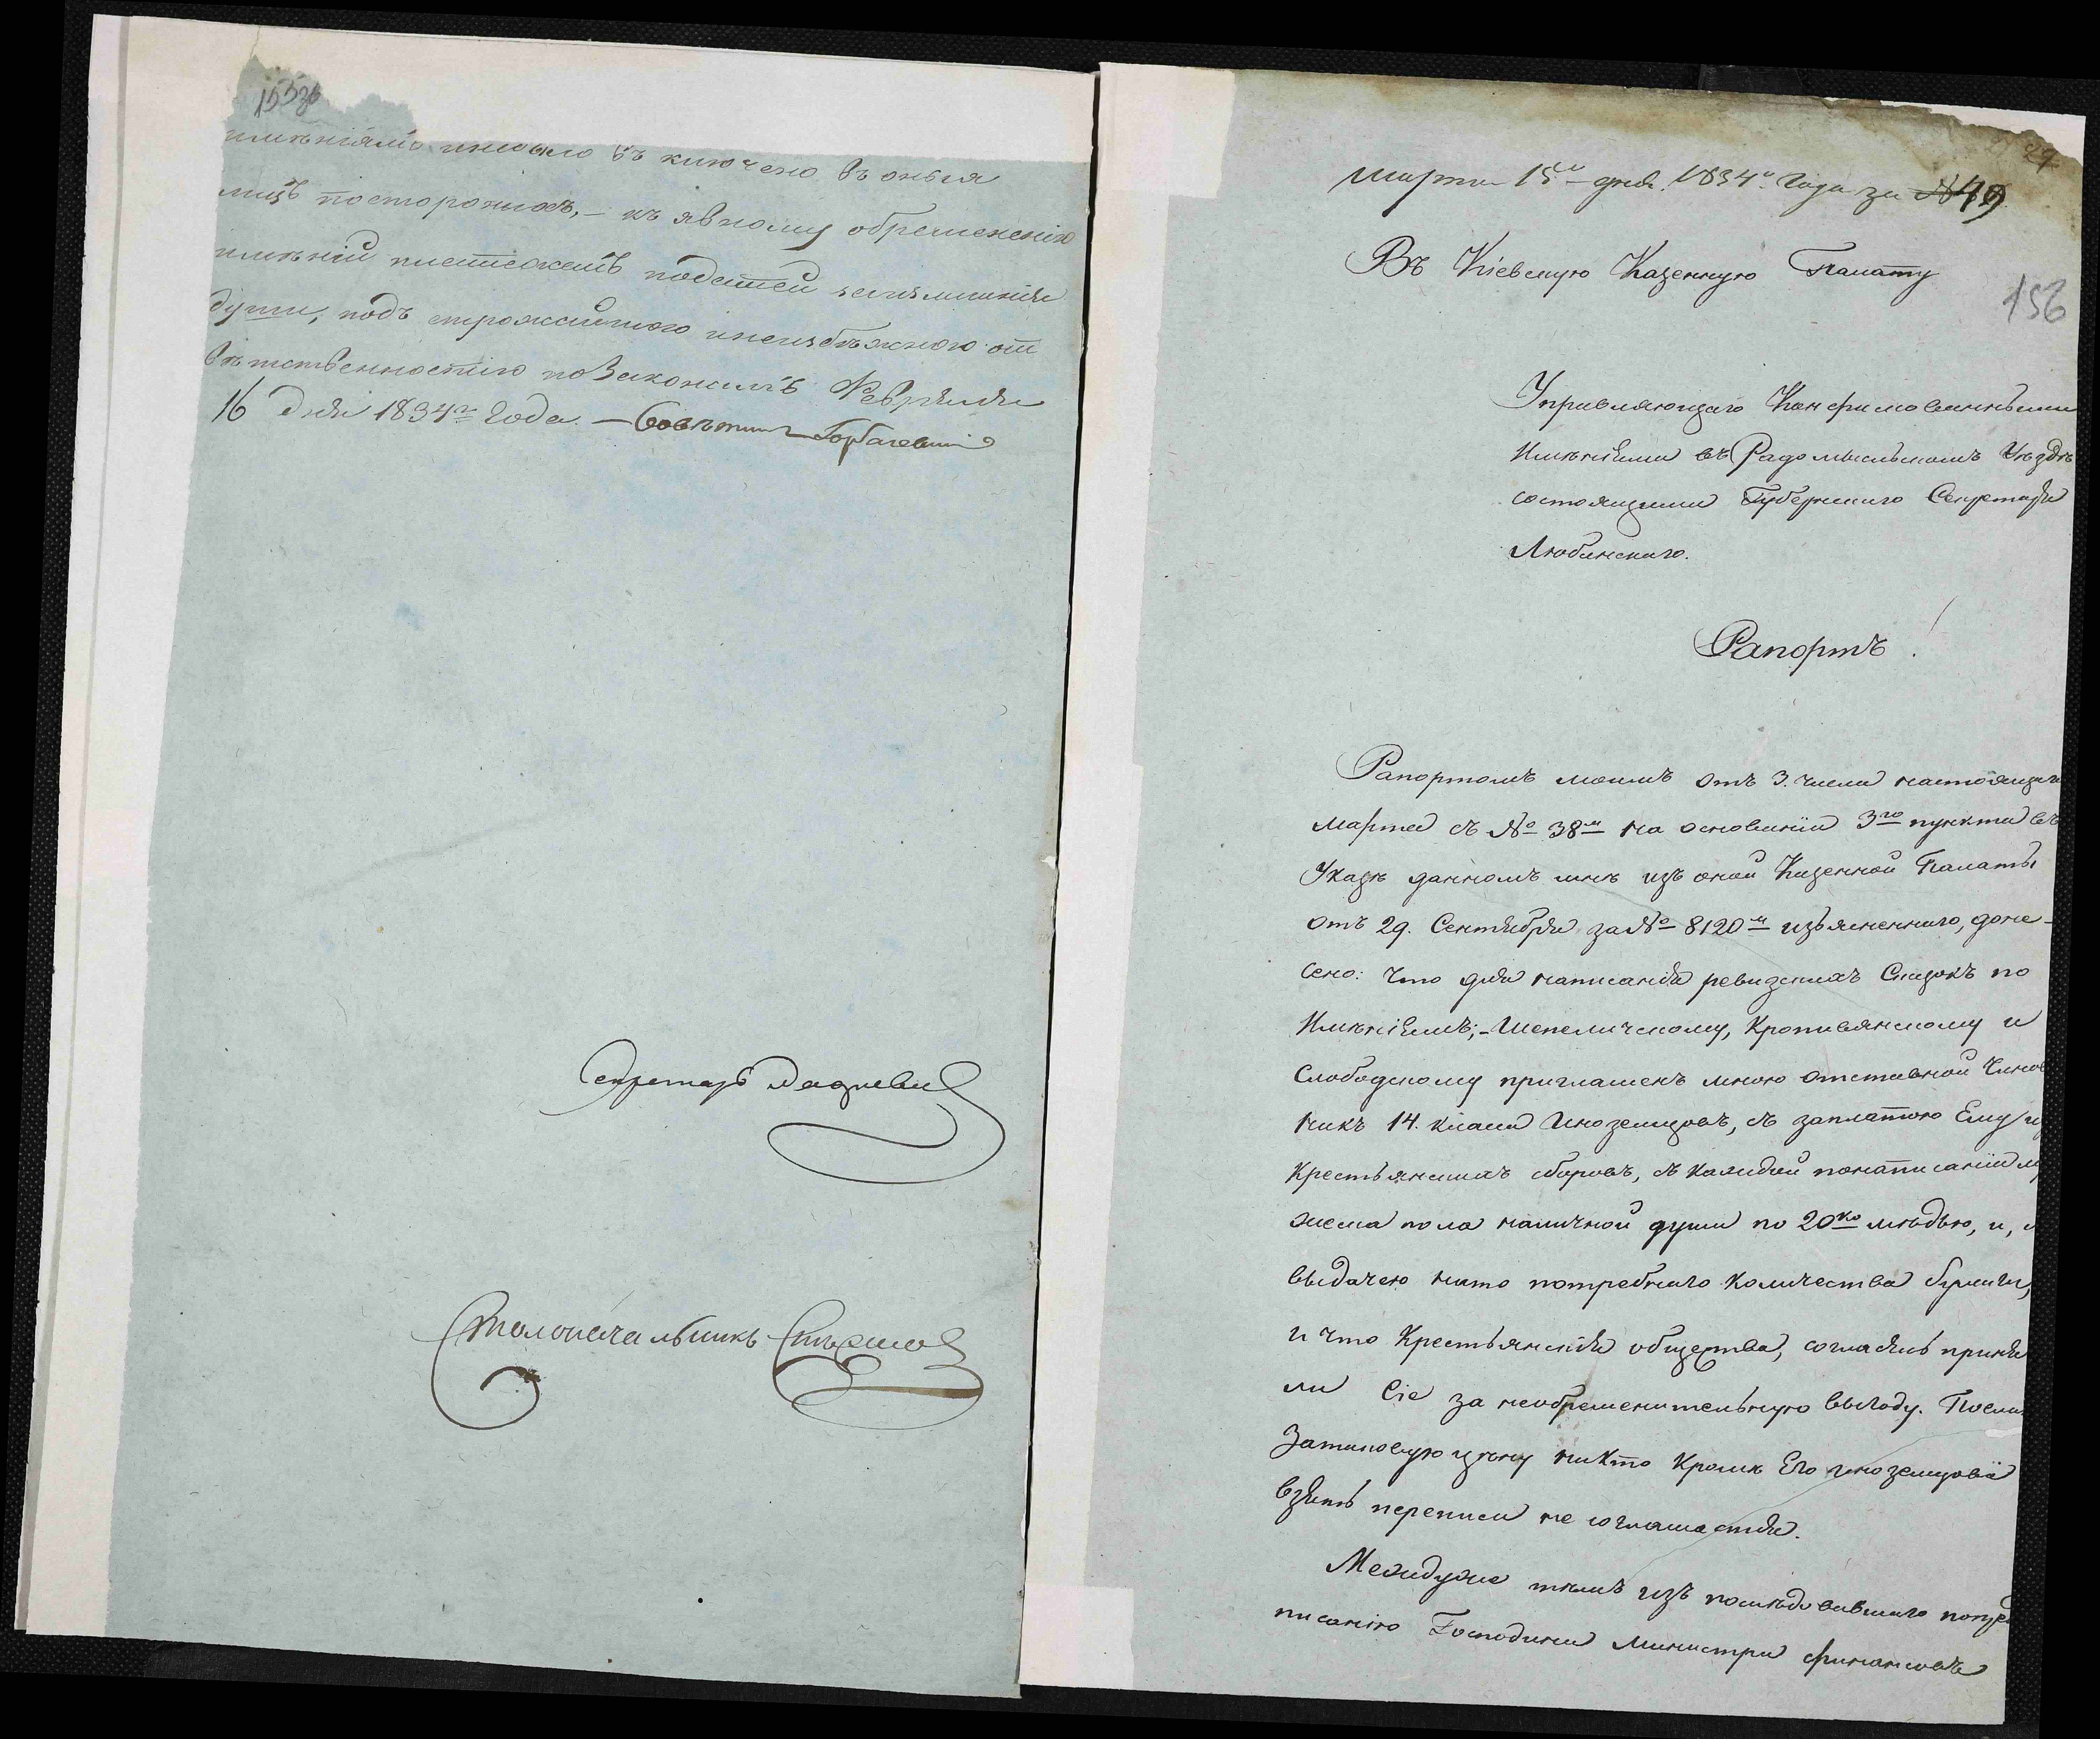 155зв
имѣніямъ небыло въ ключено въ оныя
лицъ постороннихъ, – къ явному обремененію
имѣній платежемъ податей за излишнія
души, подъ строжайшею инеизбѣжною от
вѣтственностію позаконамъ Февраля
16 дня 1834го Года. — Совѣтникъ Горбачевскій
Секретарь
Столоначальникъ
29
Марта 15го дня 1834го Года за № 49
156
Въ Кіевскую Казенную Палату
Управляющаго Конфискованными
Имѣніями въ Радомысльскомъ Уѣздѣ
состоящими Губернскаго Секретаря
Любинскаго.
Рапортъ!
Рапортомъ моимъ отъ 3. числа настоящаго
Марта съ № 38м на основаніи 3го пункта въ
Указѣ данномъ мнѣ изъ оной Казенной Палаты
отъ 29. Сентября за № 8120м изъясненнаго, доне-
сено: что для написанія ревизскихъ Сказокъ по
Имѣніямъ; – Шепеличскому, Кропивянскому и
Слободскому приглашенъ мною отставной Чинов
никъ 14. класа Иноземцовъ, съ заплатою Ему и
Крестьянскихъ сборовъ, съ каждой понаписаніи м
жеска пола наличной души по 20ко мѣдью, и, с
выдачею нато потребнаго количества бумаги,
и что Крестьянскія общества, согласясь приня
ли Сіе за необременительную выгоду. Поели
Затаковую цѣну никто Кромѣ Его Иноземцова
взять переписи не соглашается.
Междуже тѣмъ изъ послѣдовавшаго попред
писанію Господина Министра финансовъ